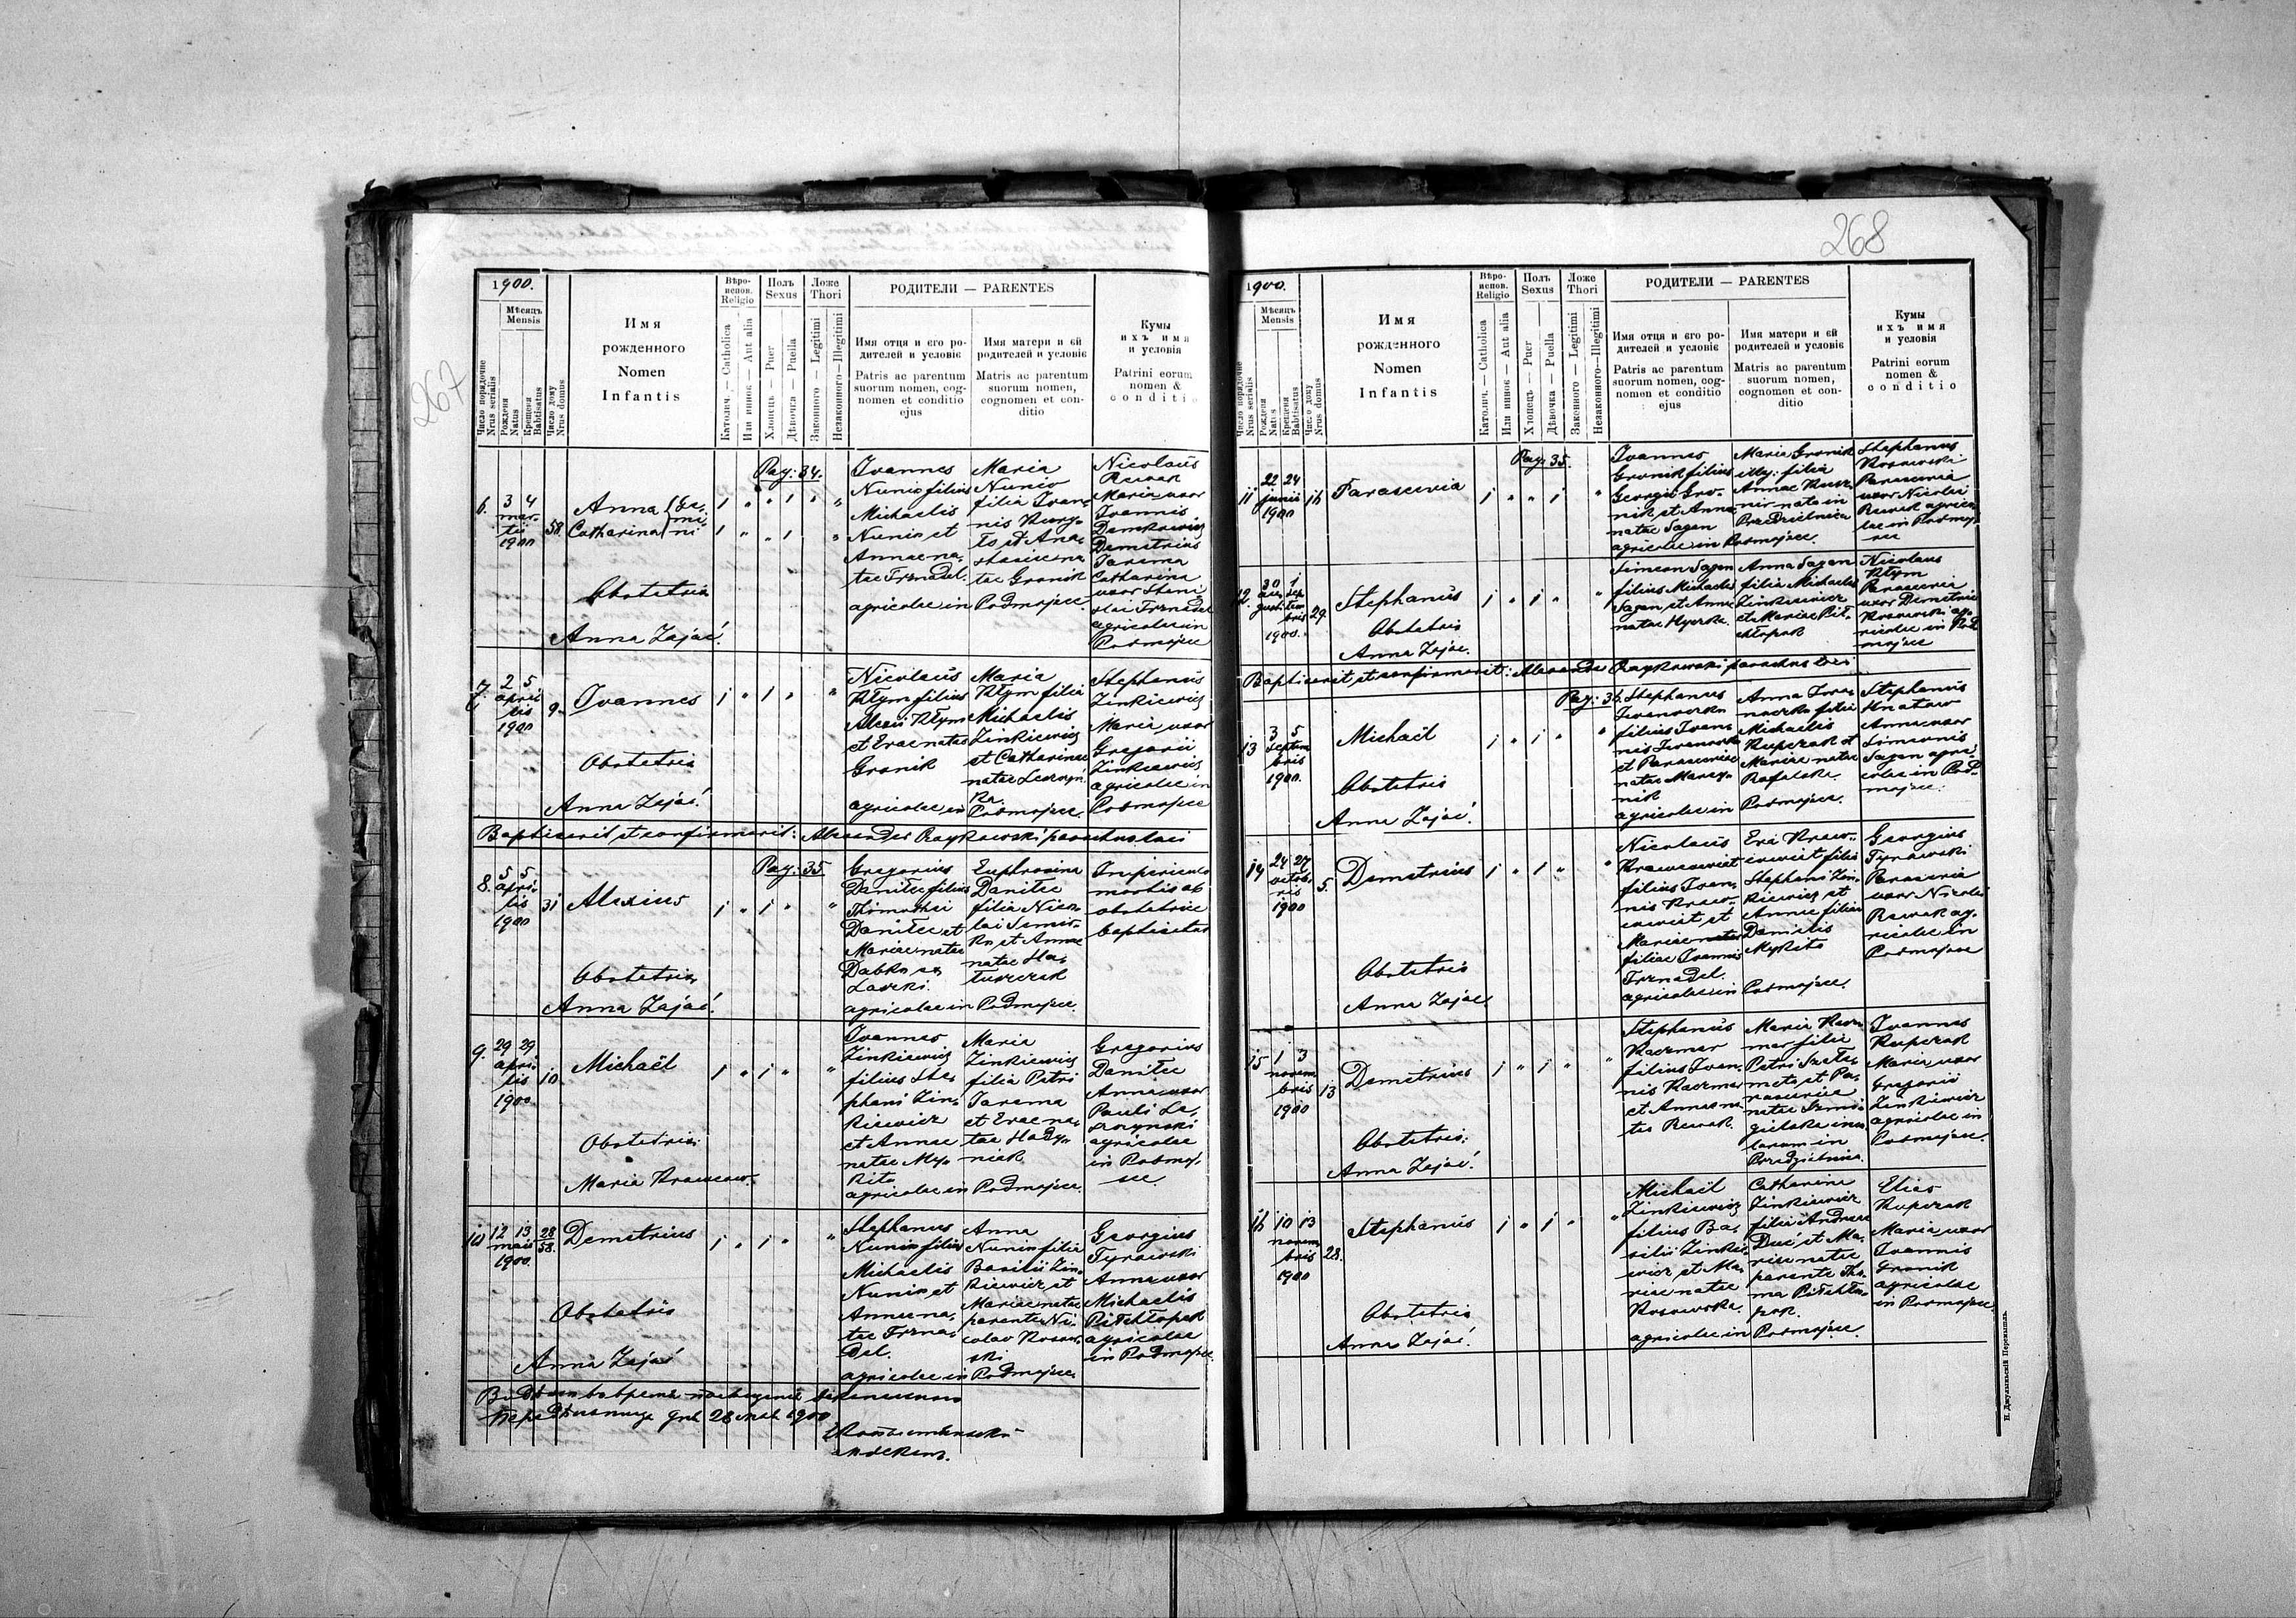 267
1900.
Мѣсяцъ
Mensis
Число порядочне
Nrus serialis
Рожденя
Natus
Крещеня
Babtisatus
Число дому
Nrus domus
Имя
рожденного
Nomen
Infantis
Вѣро-
испов.
Religio
Католич. — Catholica
Или инное — Aut alia
Полъ
Sexus
Хлопець — Puer
Дѣвочка — Puella
Ложе
Thori
Законного — Legitimi
Незаконного — Illegitimi
РОДИТЕЛИ — PARENTES
Имя отця и єго ро-
дителей и условіє
Patris ac parentum
suorum nomen, cog-
nomen et conditio
ejus
Имя матери и єй
родителей и условіє
Matris ac parentum
suorum nomen,
cognomen et con-
ditio
Кумы
ихъ имя
и условія
Patrini eorum
nomen &
conditio
Pag: 34.
6. 3 4
mar-
tii
1900
58.
Anna
Catharina
Obstetrix
Anna Zając.
Ioannes
Nunio filius
Michaelis
Nunio et
Annae na-
tae Trznadel.
agricolae in Podmojsce
Maria
Nunio
filia Ioan-
nis
et Ana-
stasiae na
tae Gronik
Nicolaus
Rewak
Maria uxor
Ioannis
Demkowicz
Demetrius
Jarema
Catharina
uxor Stani
slai Trznadel
agricolae in
Podmojsce
7. 2 5
apri
lis
1900
9.
Ioannes
Obstetrix
Anna Zając.
Nicolaus
Kłym filius
Alexii Kłym
et Evae natae
Gronik
agricolae in Podmojsce.
Maria
Kłym filia
Michaelis
Zinkiewicz
et Catharinae
natae
Stephanus
Zinkiewicz
Maria uxor
Gregorii
Zinkiewicz
agricolae in
Podmojsce
Baptisavit et confirmavit: Alexander Czaykowski parochus loci
Pag: 35
8. 5 5
apri-
lis
1900
31
Alexius
Obstetrix
Anna Zając.
Gregorius
Daniłec filius
Thimothei
Daniłec et
Mariae natae
Dabko
agricolae in Podmojsce.
Euphrosina
Daniłec
filia Nico-
lai
et Annae
natae
In periculo
mortis ab
obstetrice
baptisatus
9. 29 29
apri-
lis
1900
10.
Michaël
Obstetrix
Maria
Ioannes
Zinkiewicz
filius Ste-
phani Zin-
kiewicz
et Annae
natae My-
kita
agricolae in Podmojsce.
Maria
Zinkiewicz
filia Petri
Jarema
et Evae na-
tae Hady-
niak
Gregorius
Daniłec
Anna uxor
Pauli
agricolae
in Podmoj-
sce.
10 12 13
maii
1900.
28
58.
Demetrius
Obstetrix
Anna Zając
Stephanus
Nunio filius
Michaelis
Nunio et
Annae na-
tae Trzna-
del.
agricolae in Podmojsce.
Anna
Nunio filia
Basilii Zin-
kiewicz et
Mariae natae
parente Ni-
colao Kosow-
ski
Georgius
Tyrawski
Anna uxor
Michaelis
Pitchłopek
agricolae
in Podmojsce.
1900
268
1900.
Мѣсяцъ
Mensis
Число порядочне
Nrus serialis
Рожденя
Natus
Крещеня
Babtisatus
Число дому
Nrus domus
Имя
рожденного
Nomen
Infantis
Вѣро-
испов.
Religio
Католич. — Catholica
Или инное — Aut alia
Полъ
Sexus
Хлопець — Puer
Дѣвочка — Puella
Ложе
Thori
Законного — Legitimi
Незаконного — Illegitimi
РОДИТЕЛИ — PARENTES
Имя отця и єго ро-
дителей и условіє
Patris ac parentum
suorum nomen, cog-
nomen et conditio
ejus
Имя матери и єй
родителей и условіє
Matris ac parentum
suorum nomen,
cognomen et con-
ditio
Кумы
ихъ имя
и условія
Patrini eorum
nomen &
conditio
Pag: 35.
11 22 24
junii
1900
16
Parascevia
Ioannes
Gronik filius
Georgii Gro-
nik et Anna
natae Sagan
agricolae in Podmojsce.
Maria Gronik
filia
Annae
nata in
Przedzielnica
Stephanus
Kosowski
Parascevia
uxor Nicolai
Rewak agrico
lae in Podmoj-
sce
12. 30 1
au-
gusti
sep
tem
bris
1900.
29.
Stephanus
Obstetrix
Anna Zając.
Simeon Sagan
filius Michaelis
Sagan et Annae
natae
Anna Sagan
filia Michaelis
Zinkiewicz
et Mariae Pit-
chłopek
Nicolaus
Kłym
Parascevia
uxor Demetrii
Kosowski ag-
ricolae in Pod
mojsce
Baptisavit et confirmavit: Alexander Czaykowski parochus loci
Pag: 36.
13 3 5
septem
bris
1900.
Michaël
Obstetrix
Anna Zając.
Stephanus
Iwanoczko
filius Ioan-
nis Iwanoczko
et Parasceviae
natae
agricolae in Podmojsce.
Anna Iwa-
noczko filia
Michaelis
Kupczak et
Mariae natae
Rafalska.
Stephanus
Hnatow
Anna uxor
Simeonis
Sagan agri-
colae in Pod-
mojsce.
14 24 27
octob-
ris
1900
5.
Demetrius
Obstetrix
Anna Zając.
Nicolaus
filius Ioan-
nis
Mariae
filiae Ioannis
Trznadel.
agricolae in Podmojsce.
Eva
filia
Stephani Zin-
kiewicz et
Annae filiae
Danielis
Mykita
Georgius
Tyrawski
Parascevia
uxor Nicolai
Rewak ag-
ricolae in
Podmojsce
15 1 3
novem
bris
1900
13
Demetrius
Obstetrix
Anna Zając.
Stephanus
Kaczmar
filius Ioan-
nis Kaczmar
et Annae na
tae Rewak.
Maria Kacz-
mar filia
Petri
et Pa-
rasceviae
natae
in
Przedzielnica.
Ioannes
Kupczak
Maria uxor
Gregorii
Zinkiewicz
agricolae in
Podmojsce.
16 10 13
novem
bris
1900
28.
Stephanus
Obstetrix
Anna Zając.
Michaël
Zinkiewicz
filius Ba-
silii Zinkie-
wicz et Ma-
riae natae
Kosowska.
agricolae in Podmojsce.
Catharina
Zinkiewicz
filia Andreae
et Ma-
riae natae
parente Tho-
ma
Elias
Kupczak
Maria uxor
Ioannis
Gronik
agricolae
in Podmojsce.
Н. Джулыньскій Перемышль